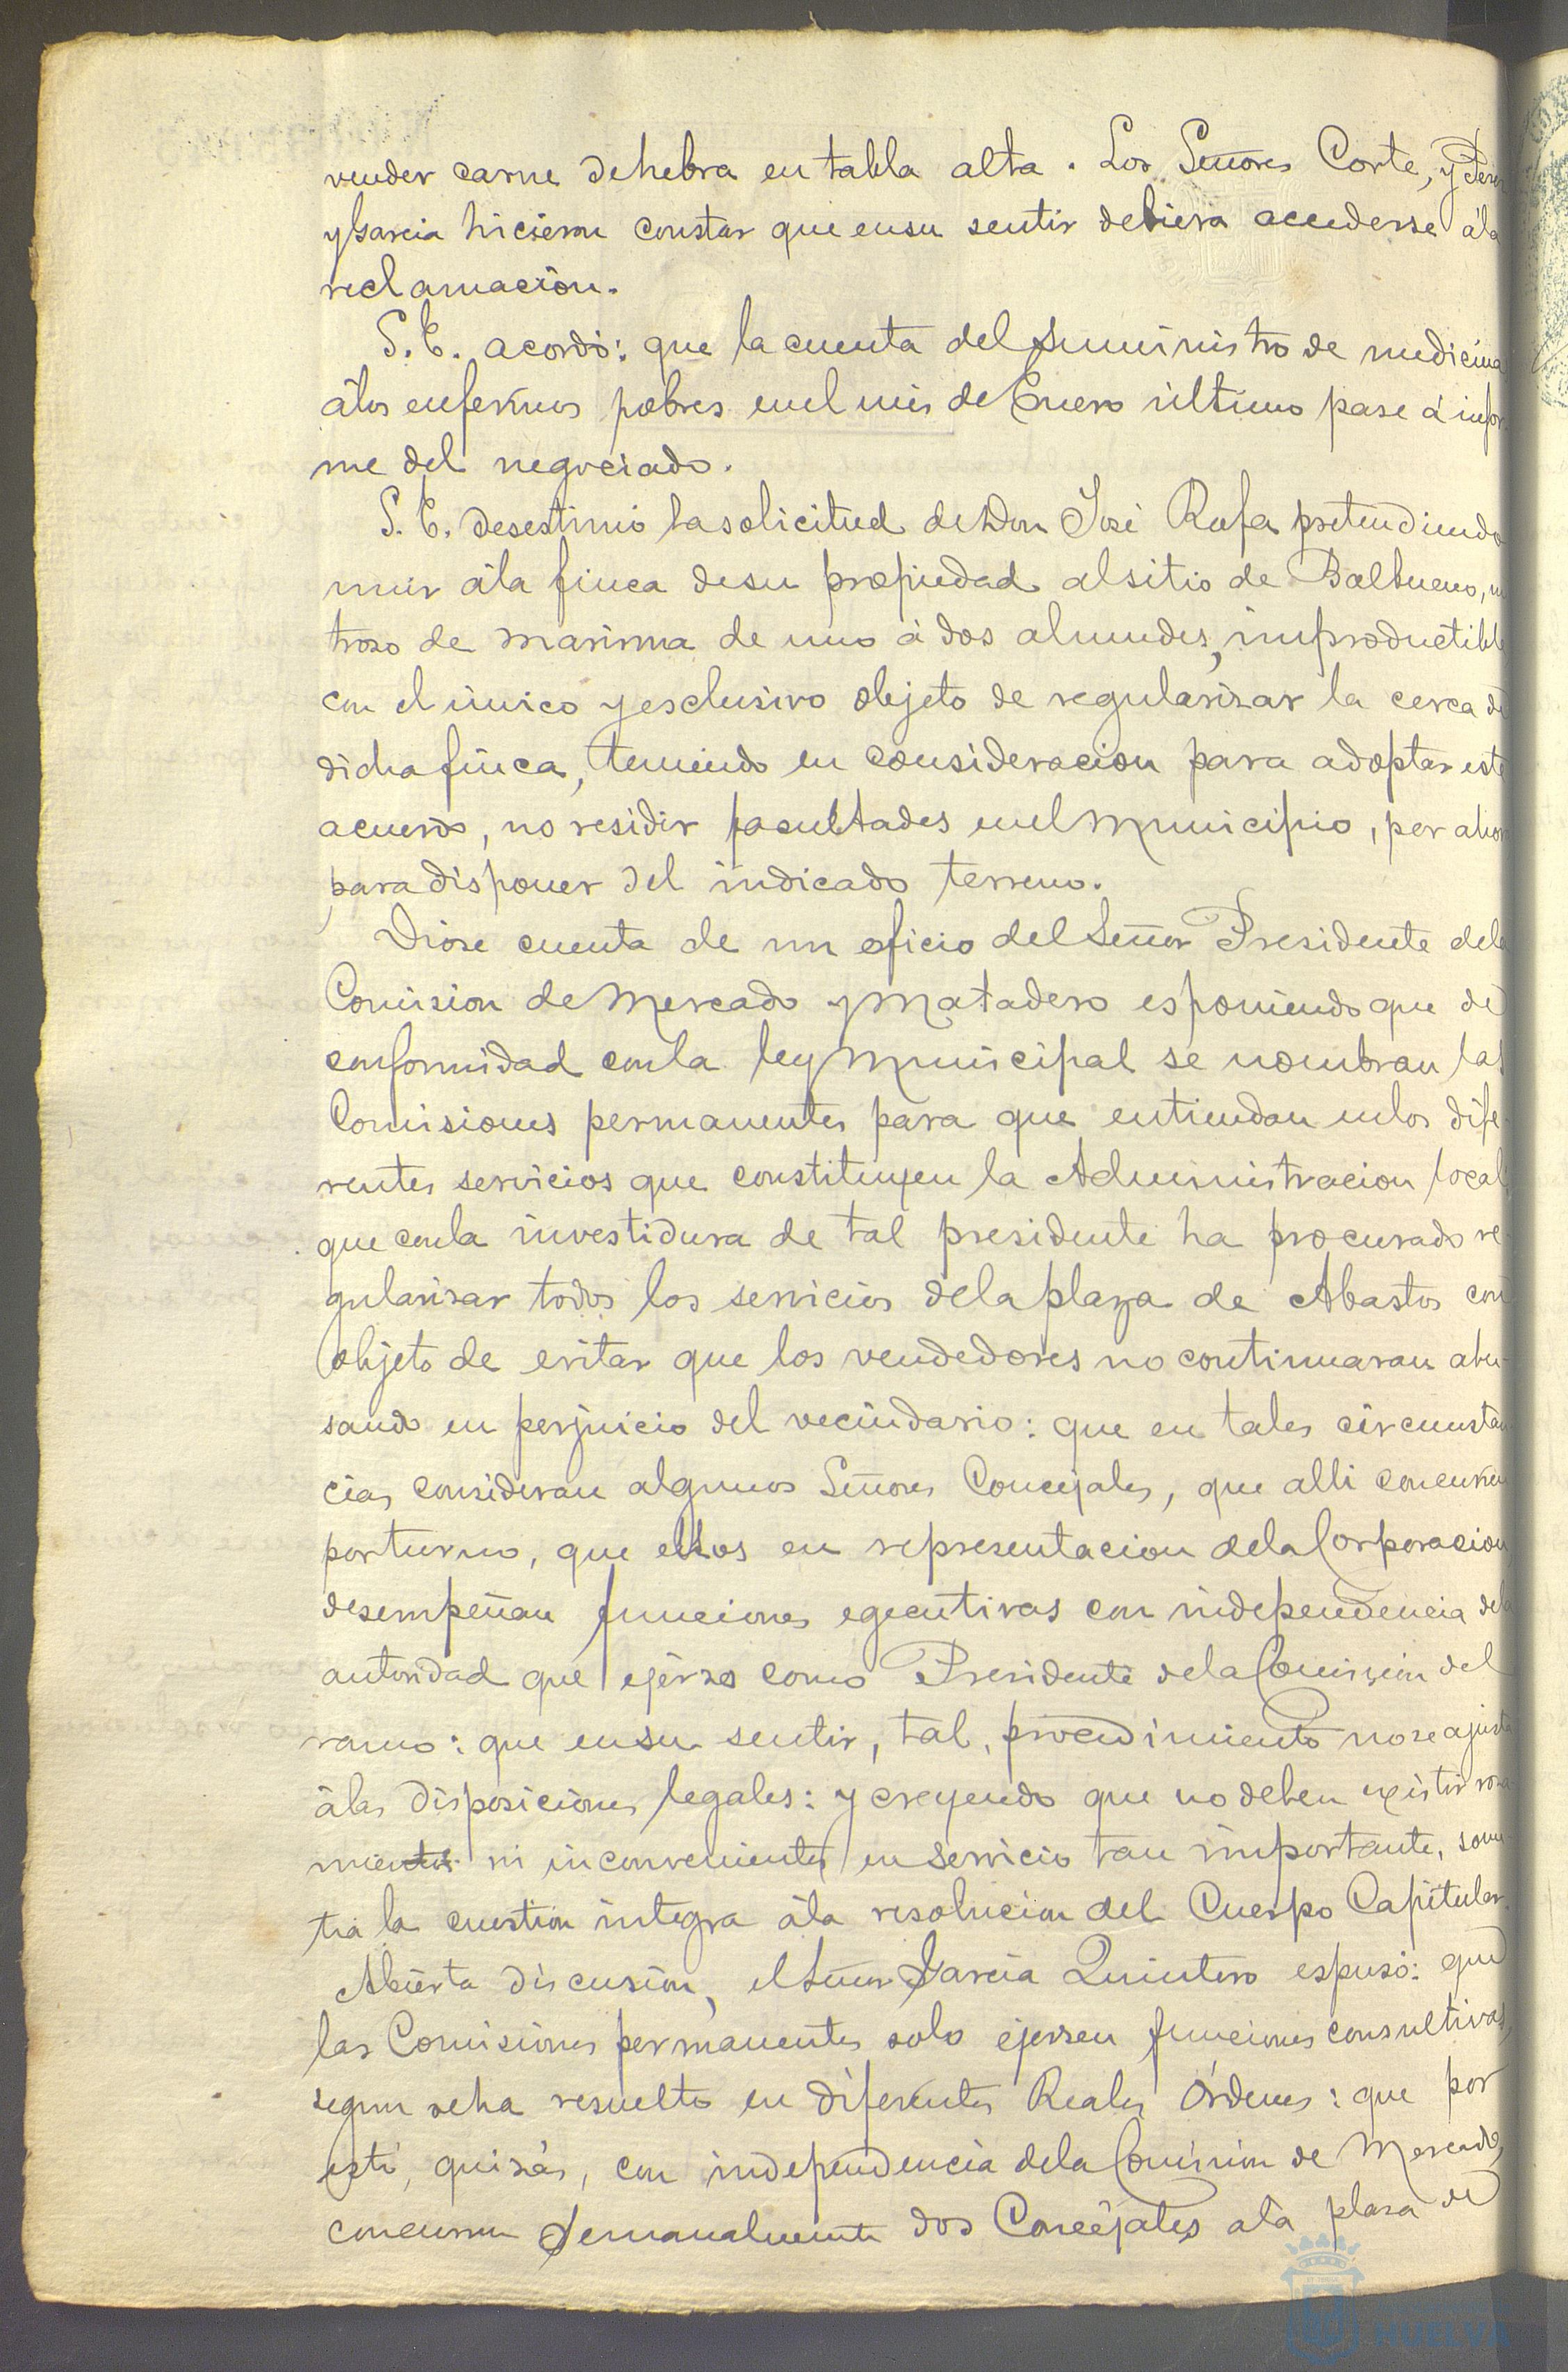 vender carne de hebra en tabla alta. Los Señores Corte, y Perez
y Garcia hicieron constar que en su sentir debiera accederse á la
reclamacion.
S. E. acordó: que la cuenta del suministro de medicina
á los enfermos pobres en el mes de Enero último pase á infor
me del negociado.
S. E. desestimó la solicitud de Don José Rufa pretendiendo
unir á la finca de su propiedad al sitio de Balbueno, un
troso de marisma de uno á dos almudes, improductible
con el único y esclusivo objeto de regularisar la cerca de
dicha finca, teniendo en consideracion para adoptar este
acuerdo, no residir facultades en el Municipio, por ahora
para disponer del indicado terreno.
Diose cuenta de un oficio del Señor Presidente de la
Comision de Mercado y Matadero esponiendo que de
conformidad con la ley Municipal se nombran las
Comisiones permanentes para que entiendan en los dife
rentes servicios que constituyen la Administracion local
que con la investidura de tal presidente ha procurado re
gularisar todos los servicios de la plaza de Abastos con
objeto de evitar que los vendedores no continuaran abu-
sando en perjuicio del vecindario: que en tales circunstan
cias consideran algunos Señores Concejales, que alli concurren
por turno, que ellos en representacion de la Corporacion
desempeñan funciones egecutivas con independencia de la
autoridad que ejerzo como Presidente de la Comision del
ramo: que en su sentir, tal procedimiento no se ajusta
á las disposiciones legales: y creyendo que no deben existir roza
mientos ni inconvenientes en servicio tan importante, some
tia la cuestion integra á la resolucion del Cuerpo Capitular.
Abierta discusion, el Señor Garcia Quintero espuso: que
las Comisiones permanentes solo ejersen funciones consultivas,
segun se ha resuelto en diferentes Reales Órdenes: que por
esto, quisás, con independencia de la Comision de Mercado,
concurren semanalmente dos Concejales á la plasa de
HUELVA